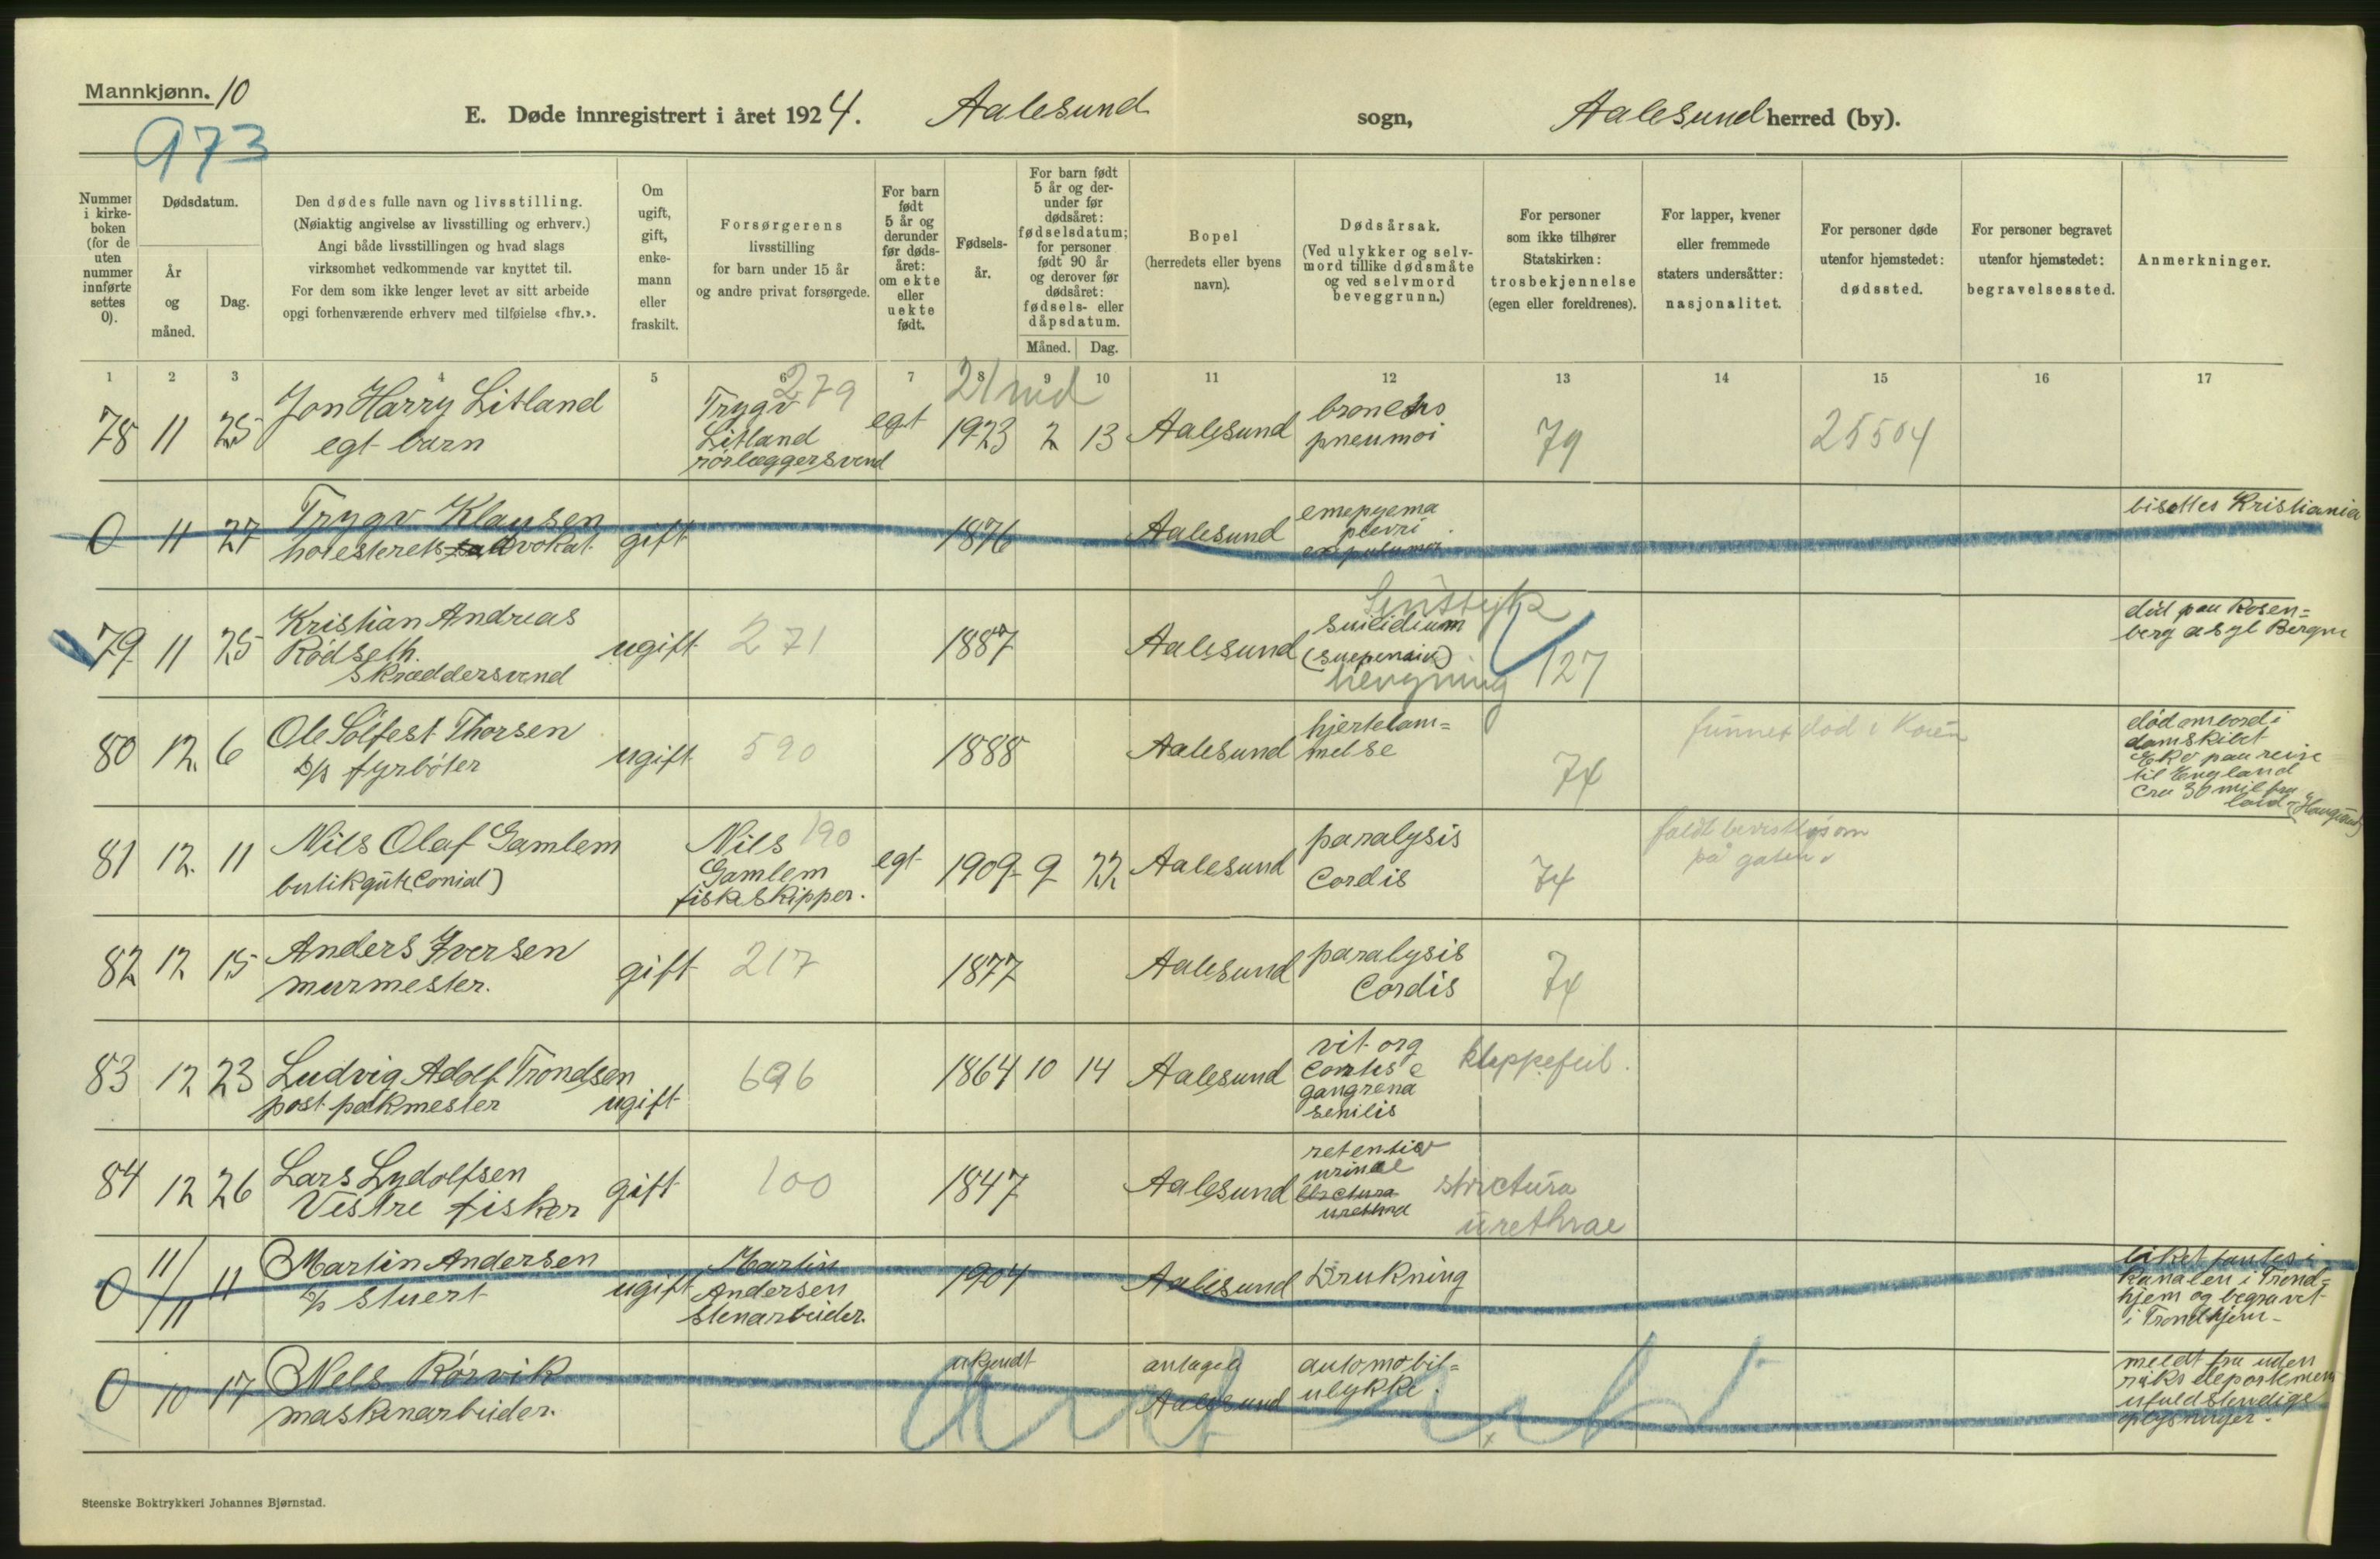 Mannkjønn. 10
E. Døde innregistrert i året 1924. Aalesund sogn, Aalesund herred (by).
973
Nummer i kirkeboken (for de uten nummer innførte settes 0).
Dødsdatum.
År og måned.
Dag.
Den dødes fulle navn og livsstilling.
(Nøiaktig angivelse av livsstilling og erhverv.)
Angi både livsstillingen og hvad slags
virksomhet vedkommende var knyttet til.
For dem som ikke lenger levet av sitt arbeide
opgi forhenværende erhverv med tilføielse «fhv.».
Om ugift, gift, enkemann eller fraskilt.
Forsørgerens
livsstilling
for barn under 15 år
og andre privat forsørgede.
For barn født 5 år og derunder før dødsåret: om ekte eller uekte født.
Fødselsår.
For barn født 5 år og derunder før dødsåret: fødselsdatum; for personer født 90 år og derover før dødsåret: fødsels- eller dåpsdatum.
Måned. Dag.
Bopel
(herredets eller byens
navn).
Dødsårsak.
(Ved ulykker og selvmord tillike dødsmåte
og ved selvmord
beveggrunn.)
For personer
som ikke tilhører
Statskirken:
trosbekjennelse
(egen eller foreldrenes).
For lapper, kvener
eller fremmede
staters undersåtter:
nasjonalitet.
For personer døde
utenfor hjemstedet:
dødssted.
For personer begravet
utenfor hjemstedet:
begravelsessted.
Anmerkninger.
1 2 3 4 5 6 7 8 9 10 11 12 13 14 15 16 17
279 21 md
78 11 25 Jon Harry Litland
egt barn
Trygv
Litland
rörlæggersvend
egt 1923 2 13 Aalesund
broncho
pneumoi
79 25504
0 11 27 Trygv Klausen
hoiesteretsadvokat. gift 1876 Aalesund
emepyema
plevri
bisettes Kristiania
79 11 25 Kristian Andreas
Rödseth.
Skræddersvend
ugift 271 1887 Aalesund
Sinssyk
suicidium
(suspensio)
hengning 127
död paa Rosen=
berg asyl Bergen
80 12. 6 Ole Sölfest Thorsen
D/s fyrböter
ugift 590 1888 Aalesund
hjertelam=
melse
74
funnet död i Koien
död ombord i
damskibet
Eko paa reise
til England
Cra 30 mil fra
land (Haugesund)
81 12. 11 Nils Olaf Gamlem
butikgut (Conial)
Nils 190
Gamlem
fiskeskipper.
egt 1909 9 22 Aalesund
paralysis
Cordis
74
faldt bevisstlös om
på gaten
82 12 15 Anders Iversen
murmester.
gift 217 1877 Aalesund
paralysis
Cordis
74
83 12 23 Ludvig Adolf Trondsen
post pakmester ugift
696 1864 10 14 Aalesund
vit org
Cordis e
gangrena
senilis
klappefeil.
84 12 26 Lars Lydolfsen
Vestre fisker gift
100 1847 Aalesund
retentio
urinae
urethra
strictura
urethrae
0 11/11 11 Martin Andersen
D/s stuert
ugift
Martin
Andersen
Stenarbeider.
1904 Aalesund Drukning
liket fantes i
Kanalen i Trond=
hjem og begravet
i Trondhjem
0 10 17 Nels Rörvik
maskinarbeider.
ukjendt
antagelig
Aalesund
automobil=
ulykke.
meldt fra uten
riks departement
ufuldstendige
oplysninger.
Steenske Boktrykkeri Johannes Bjørnstad.